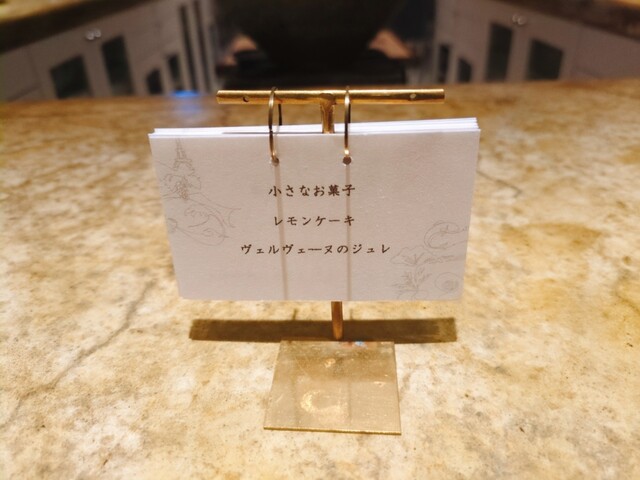 小さなお菓子
レモンケーキ
ヴェルヴェーヌのジュレ